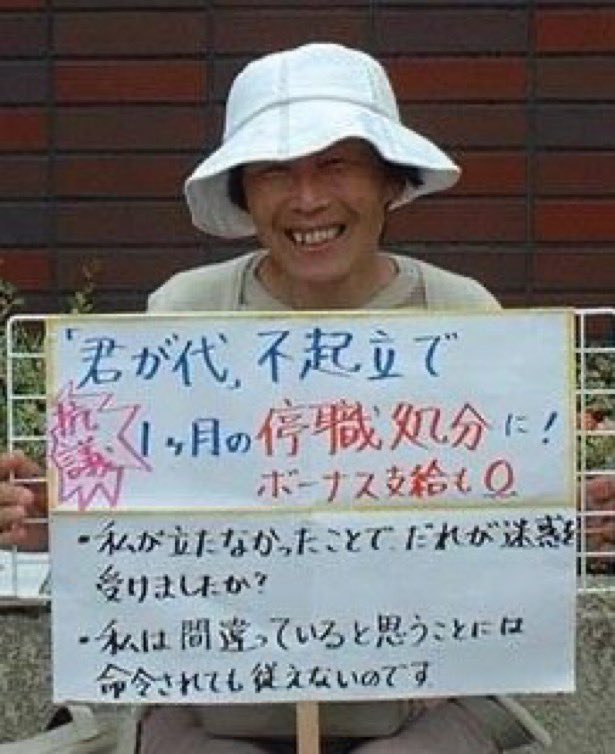 「君が代」不起立で
抗議
1ヶ月の停職処分に!
ボーナス支給も0
・私が立たなかったことで、だれが迷惑を
受けましたか?
・私は間違っていると思うことには
命令されても従えないのです